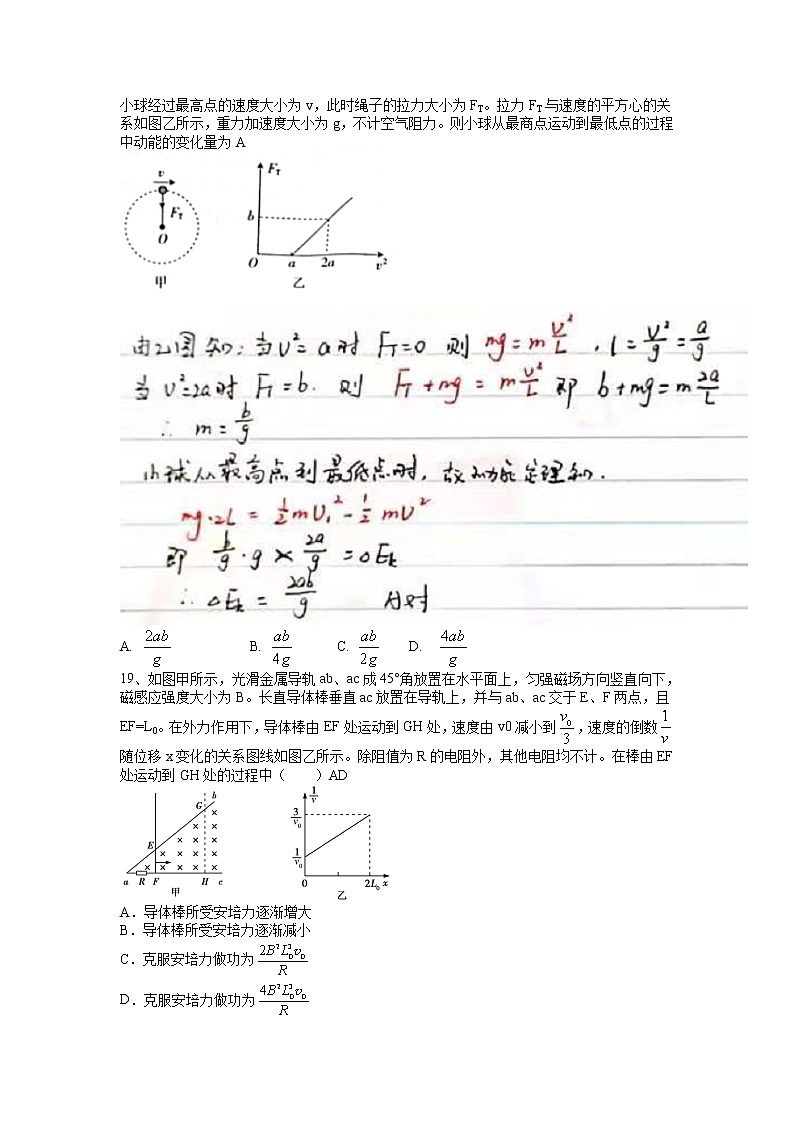 小球经过最高点的速度大小为 v，此时绳子的拉力大小为 FT。拉力 FT 与速度的平方心的关
系如图乙所示，重力加速度大小为 g，不计空气阻力。则小球从最商点运动到最低点的过程
中动能的变化量为 A
v
FT
O
甲
FT
b
O a 2a v²
乙
由乙图知：当 v²= a 时 FT=0 则 mg = m v²/L ，l = v²/g = a/g
当 v²=2a 时 FT = b. 则 FT + mg = m v²/L 即 b + mg = m 2a/L
∴ m = b/g
小球从最高点到最低点时，故动能定理知.
mg·2L = ½ mv₁² - ½ mv²
即 b/g · g × 2a/g = △Ek
∴ △Ek = 2ab/g A对
A. 2ab/g B. ab/4g C. ab/2g D. 4ab/g
19、如图甲所示，光滑金属导轨 ab、ac 成 45°角放置在水平面上，匀强磁场方向竖直向下，
磁感应强度大小为 B。长直导体棒垂直 ac 放置在导轨上，并与 ab、ac 交于 E、F 两点，且
EF=L₀。在外力作用下，导体棒由 EF 处运动到 GH 处，速度由 v0 减小到 v₀/3，速度的倒数 1/v
随位移 x 变化的关系图线如图乙所示。除阻值为 R 的电阻外，其他电阻均不计。在棒由 EF
处运动到 GH 处的过程中（　　）AD
b
G
E
a R F H c
甲
1/v
3/v₀
1/v₀
0 2L₀ x
乙
A．导体棒所受安培力逐渐增大
B．导体棒所受安培力逐渐减小
C．克服安培力做功为 2B²L₀³v₀/R
D．克服安培力做功为 4B²L₀³v₀/R